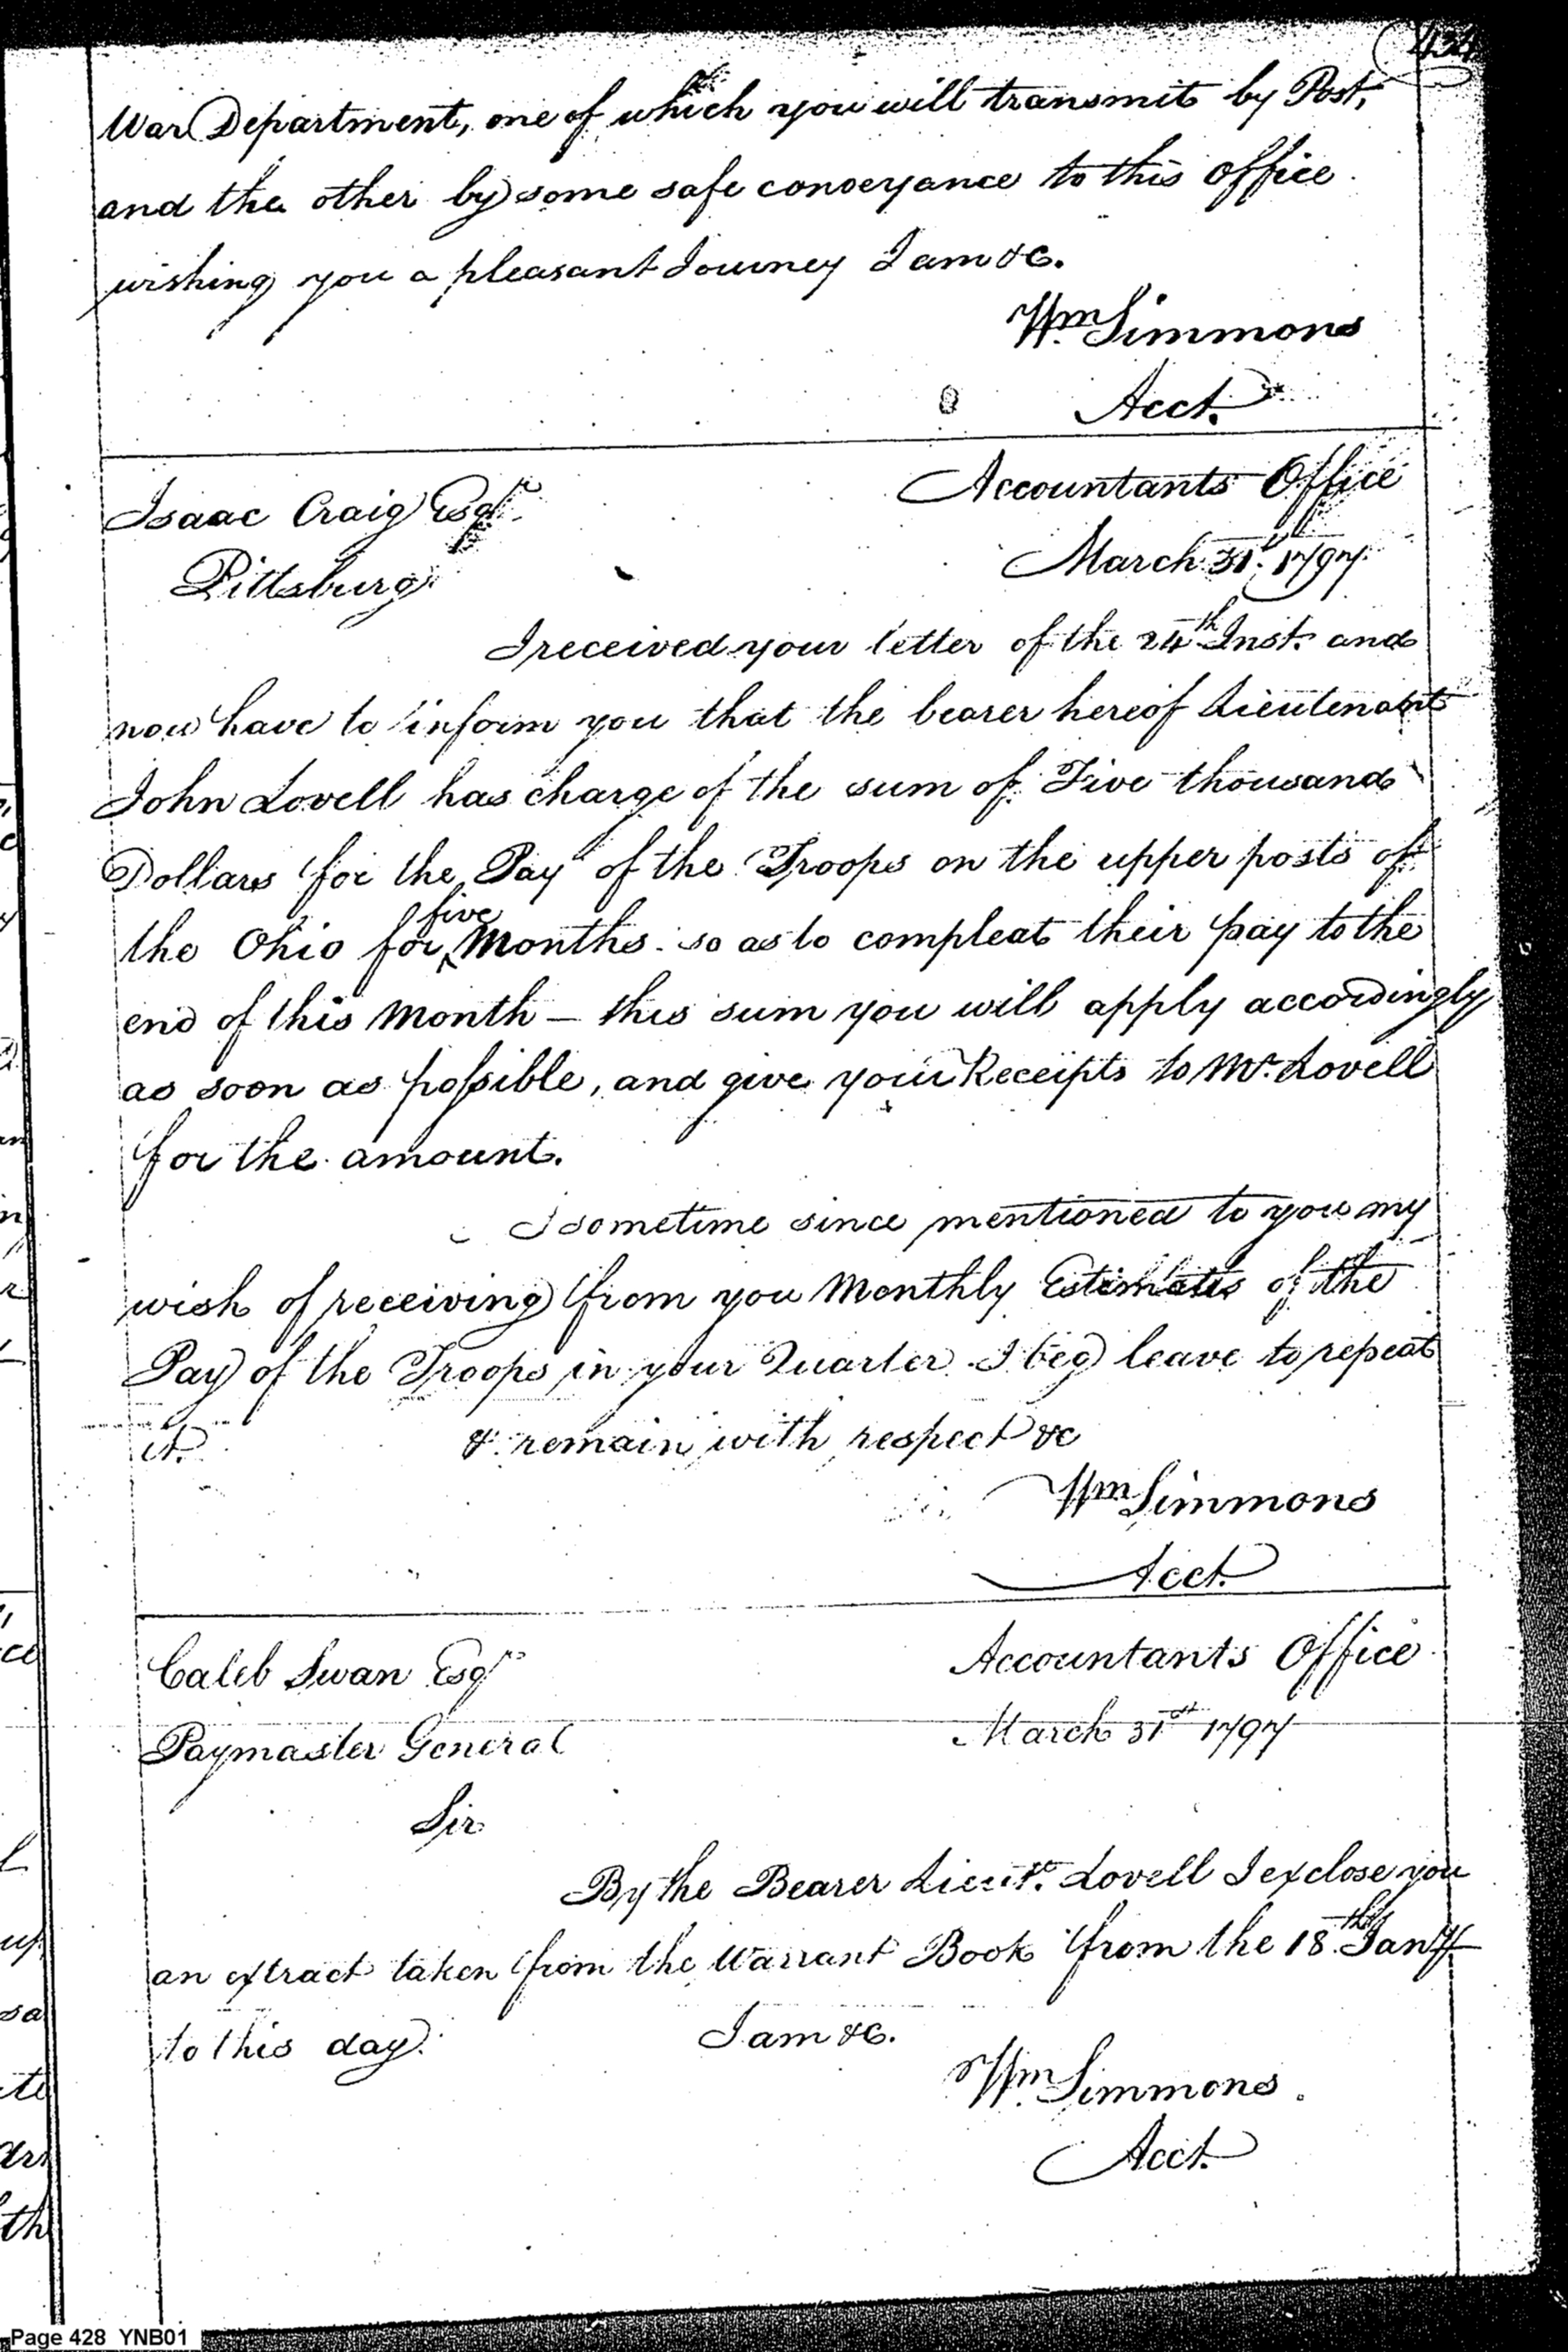 434
War Department, one of which you will transmit by Post,
and the other by some safe conveyance to this office
wishing you a pleasant Journey I am &c.
Wm Simmons
Acct.
Isaac Craig Esqr.
Accountants Office
Pittsburg
March 31st. 1797.
I received your letter of the 24th Inst. and
now have to inform you that the bearer hereof Lieutenant
John Lovell has charge of the sum of Five thousand
Dollars for the Pay of the Troops on the upper posts of
five
the Ohio for ‸ Months. so as to compleat their pay to the
end of this Month — this sum you will apply accordingly
as soon as possible, and give your Receipts to Mr. Lovell
for the amount.
I sometime since mentioned to you my
wish of receiving from you Monthly Estimates of the
Pay of the Troops in your Quarter. I beg leave to repeat
it. & remain with respect &c
Wm Simmons
Acct.
Caleb Swan Esqr
Accountants Office
Paymaster General
March 31st 1797
Sir
By the Bearer Lieut. Lovell I exclose you
an extract taken from the Warrant Book from the 18th Jany
to this day. I am &c.
Wm Simmons.
Acct.
Page 428 YNB01